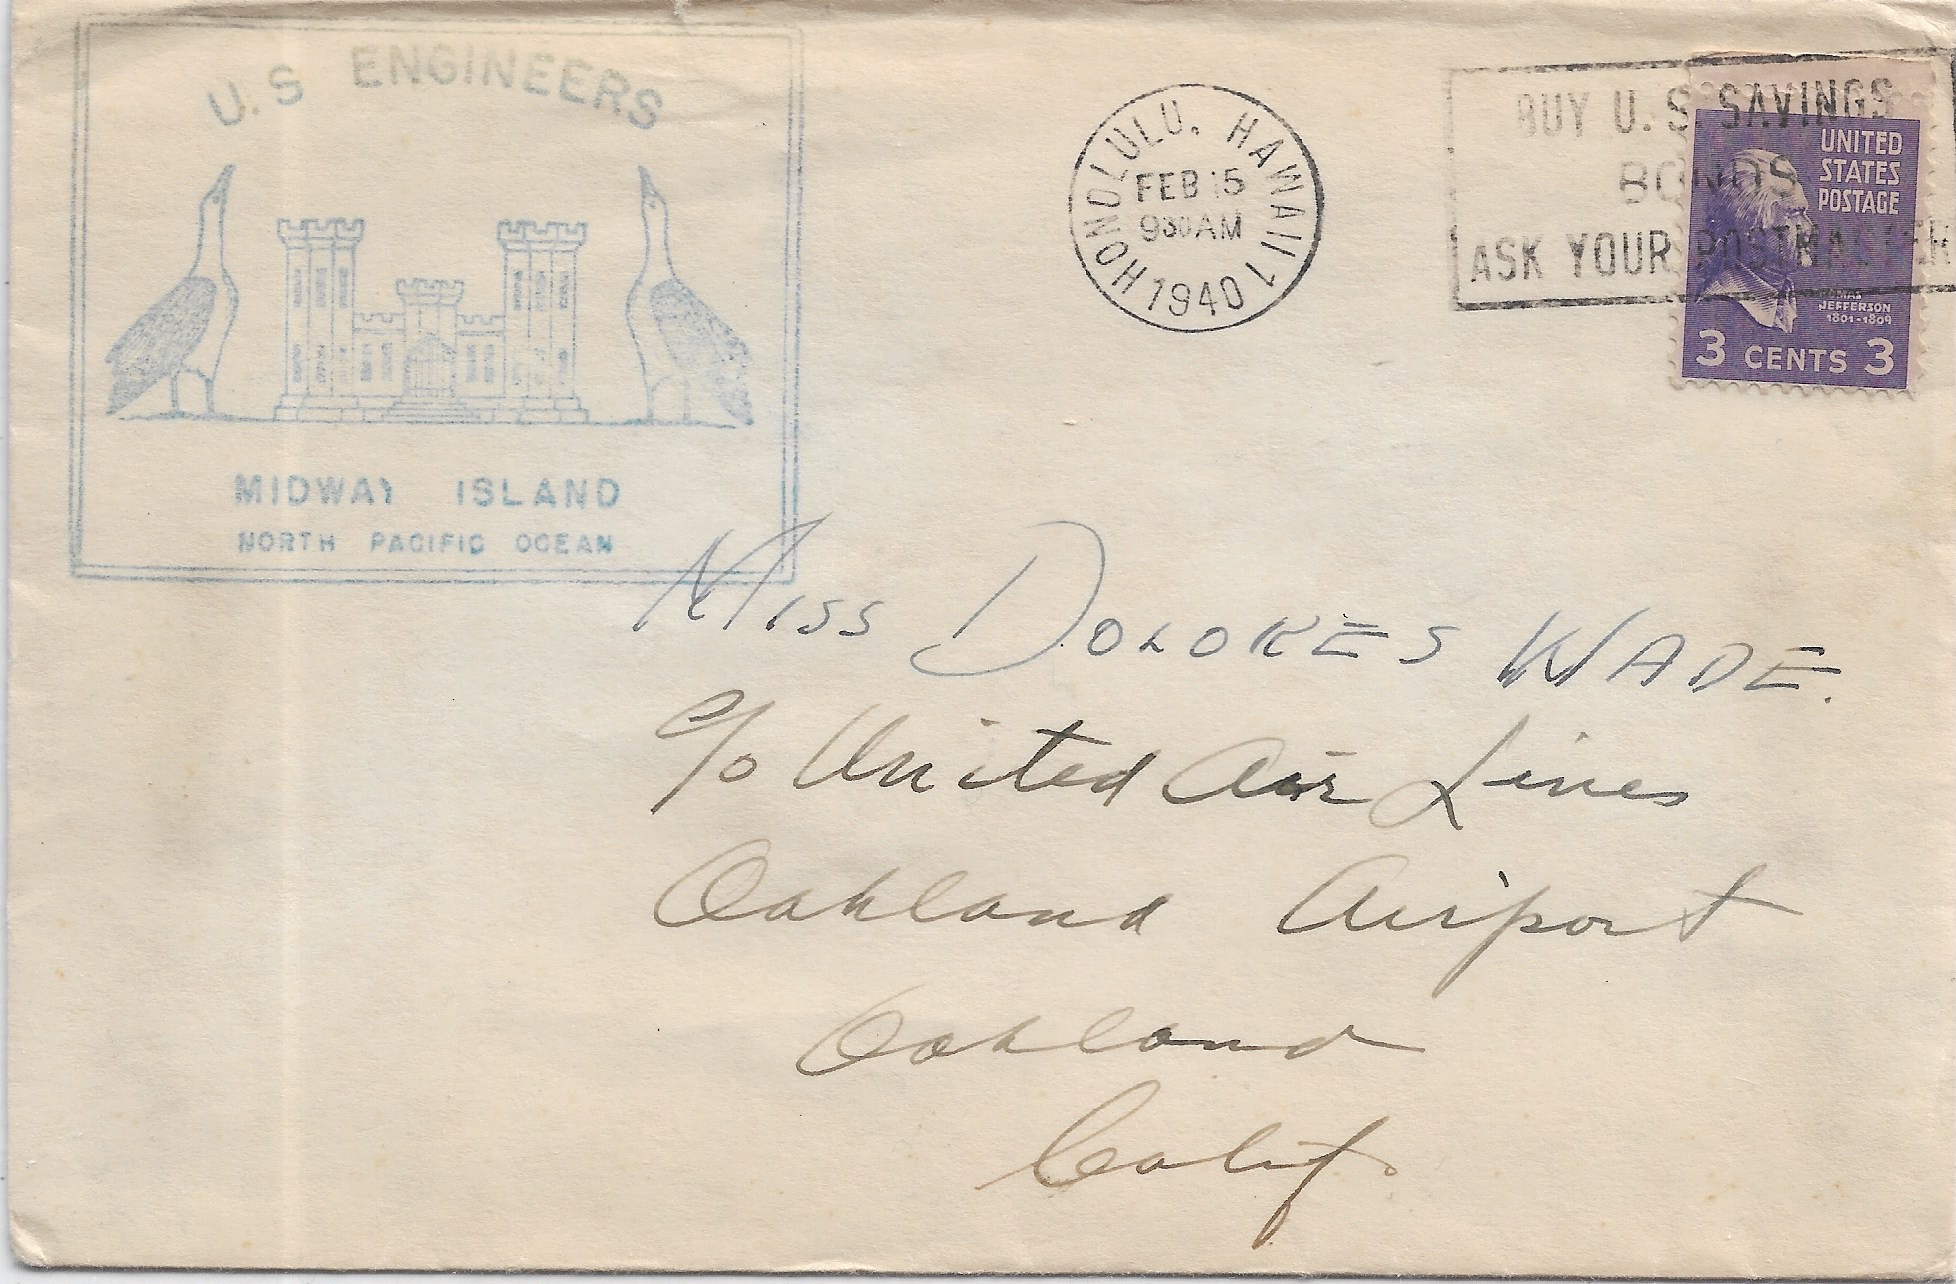 U.S ENGINEERS
MIDWAY ISLAND
NORTH PACIFIC OCEAN
HONOLULU, HAWAII 1
FEB 15
930AM
1940
BUY U. S. SAVINGS
BONDS
ASK YOUR POSTMASTER
UNITED
STATES
POSTAGE
JEFFERSON
1801-1809
3 CENTS 3
Miss DOLORES WADE.
c/o United Air Lines
Oakland Airport
Oakland
Calif.